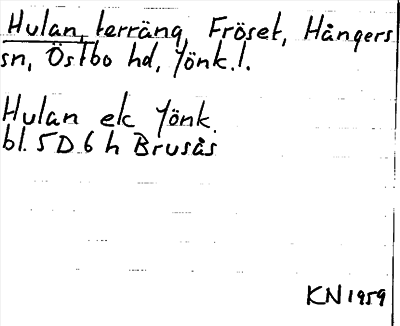 Hulan, terräng, Fröset, Hångers
sn, Östbo hd, Jönk.l.
Hulan ek Jönk.
bl. 5D6h Brusås
KN 1959